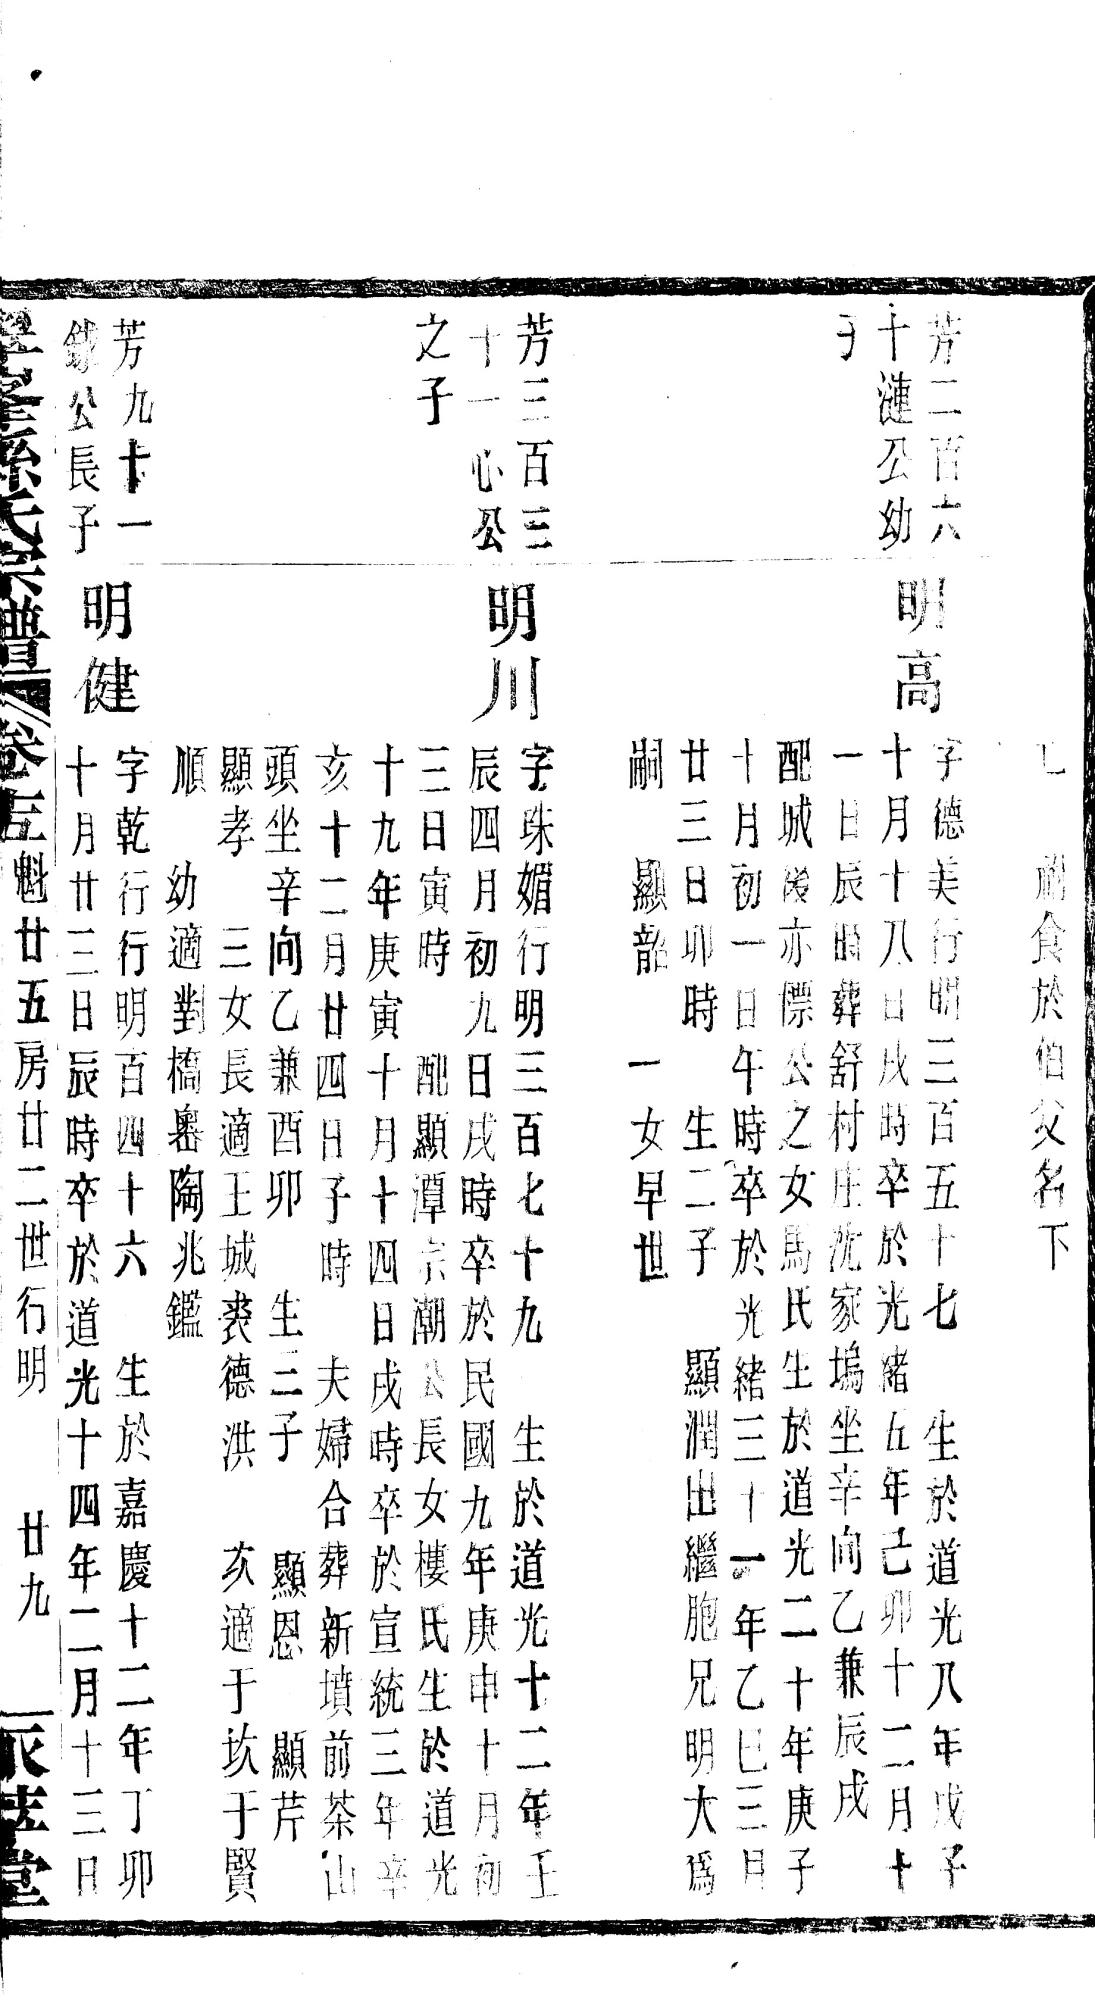 祔食於伯父名下
芳二百六
十漣公幼
子
明高
字德美行明三百五十七　生於道光八年戊子
十月十八日戌時卒於光緒五年己卯十二月十
一日辰時葬舒村庄沈家塢坐辛向乙兼辰戌
配城後亦僄公之女馬氏生於道光二十年庚子
十月初一日午時卒於光緒三十一年乙巳三月
廿三日卯時　生二子　顯潤出繼胞兄明大為
嗣　顯韶　一女早世
芳三百三
十一心公
之子
明川
字珠媚行明三百七十九　生於道光十二年壬
辰四月初九日戌時卒於民國九年庚申十月初
三日寅時　配顯潭宗潮公長女樓氏生於道光
十九年庚寅十月十四日戌時卒於宣統三年辛
亥十二月廿四日子時　夫婦合葬新墳前茶山
頭坐辛向乙兼酉卯　生三子　顯恩　顯芹
顯孝　三女長適王城裘德洪　次適于坎于賢
順　幼適對橋嶴陶兆鑑
芳九十一
錸公長子
明健
字乾行行明百四十六　生於嘉慶十二年丁卯
十月廿三日辰時卒於道光十四年二月十三日
孫氏宗譜　卷
魁廿五房廿二世行明　廿九
堂